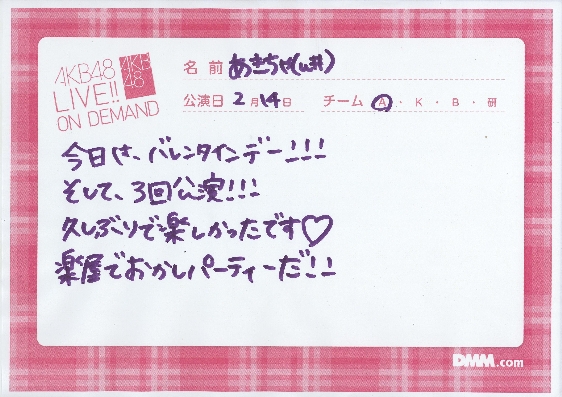 AKB48
LIVE!!
ON DEMAND
AKB
48
名前 あきちゃ(ω#)
公演日 2月14日 チーム A・K・B・研
今日は、バレンタインデー!!!
そして、3回公演!!!
久しぶりで楽しかったです♡
楽屋でおかしパーティーだ!!
DMM.com